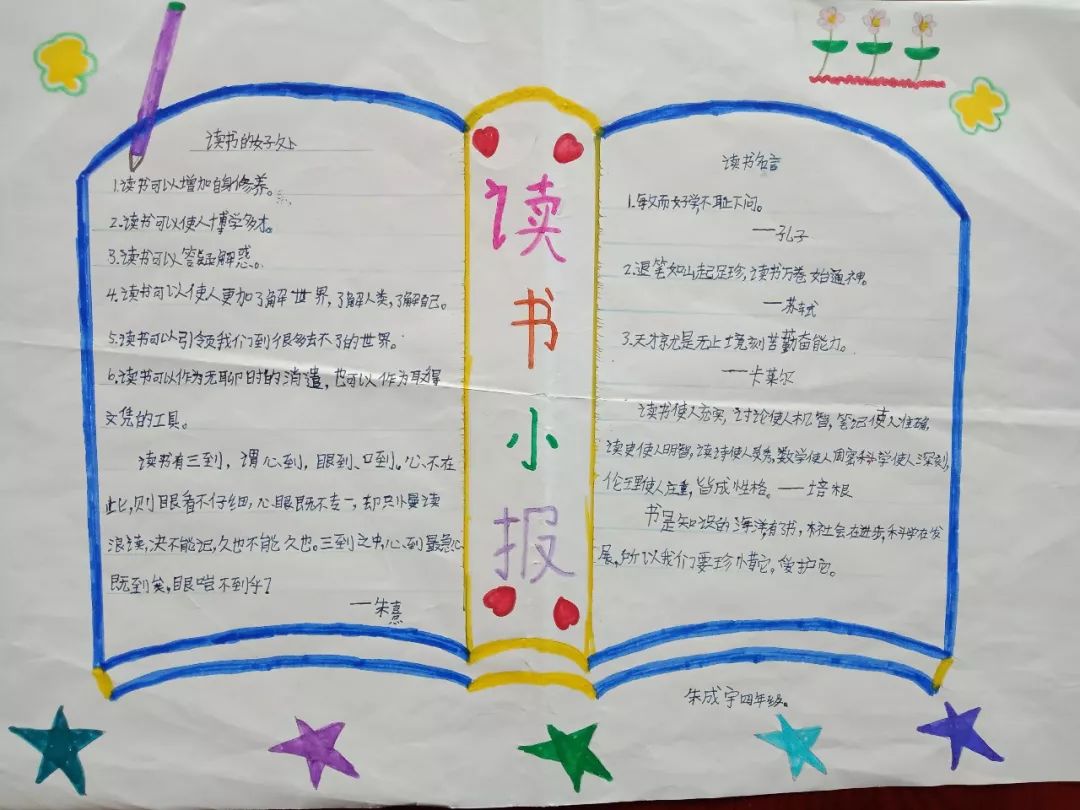 读书的好处
1.读书可以增加自身修养。
2.读书可以使人博学多才。
3.读书可以答疑解惑。
4.读书可以使人更加了解世界，了解人类，了解自己。
5.读书可以引领我们到很多去不了的世界。
6.读书可以作为无聊时的消遣，也可以作为取得
文凭的工具。
读书有三到，谓心到，眼到、口到。心不在
此，则眼看不仔细，心眼既不专一，却只慢读
浪读，决不能记，久也不能久也。三到之中，心到最急心
既到矣，眼啥不到乎？
一朱熹
读
书
小
报
读书名言
1.敏而好学，不耻下问。
一孔子
2.退笔如山起足珍，读书万卷始通神。
一苏轼
3.天才就是无止境刻苦勤奋能力。
一卡莱尔
读书使人充实，讨论使人机智，笔记使人准确，
读史使人明智，读诗使人灵秀，数学使人周密科学使人深刻，
伦理使人庄重，皆成性格。一培根
书是知识的海洋，有书，社会在进步，科学在发
展，所以我们要珍惜它，爱护它。
朱成宇四年级。